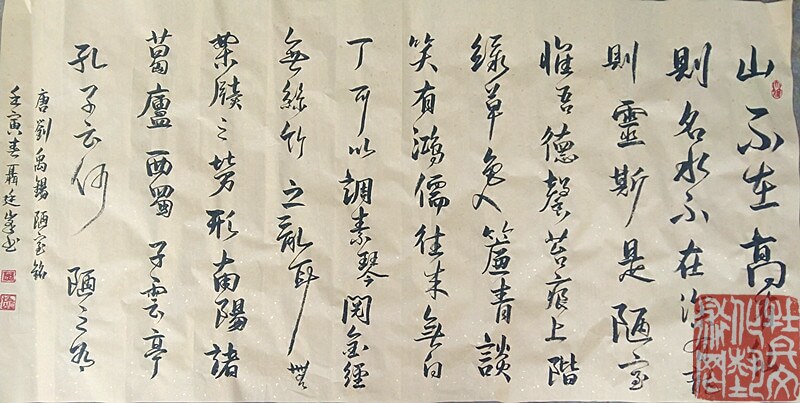 山不在高有仙
則名水不在深有龍
則靈斯是陋室
惟吾德馨苔痕上階
綠草色入簾青談
笑有鴻儒往來無白
丁可以調素琴閱金經
無絲竹之亂耳無
案牘之勞形南陽諸
葛廬西蜀子雲亭
孔子云何陋之有
唐劉禹錫陋室銘
壬寅春聶廷峯书